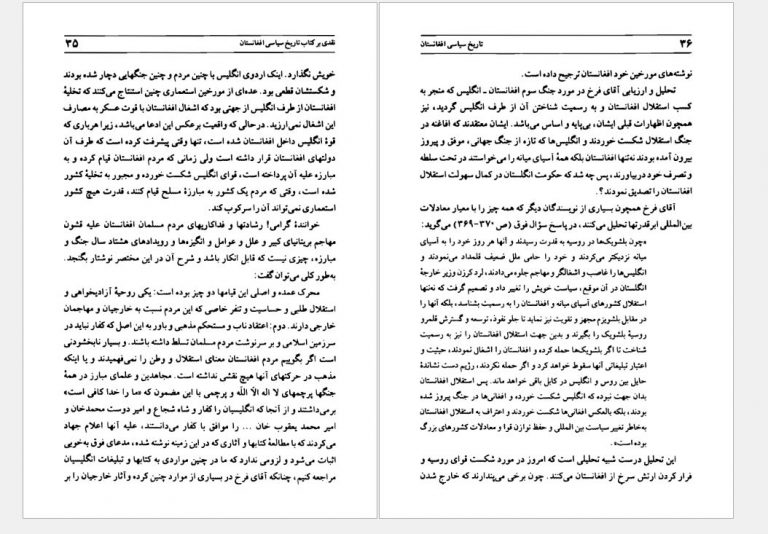 نقدی بر کتاب تاریخ سیاسی افغانستان ۳۵
خویش نگذارد. اینک اردوی انگلیس با چنین مردم و چنین جنگهایی دچار شده بودند
و شکستشان قطعی بود. عده‌ای از مورخین استعماری چنین استنتاج می‌کنند که تخلیهٔ
افغانستان از طرف انگلیس از جهتی بود که اشغال افغانستان با قوت عسکر به مصارف
این اشغال نمی‌ارزید. درحالی که واقعیت برعکس این ادعا می‌باشد، زیرا هرباری که
قوهٔ انگلیس داخل افغانستان شده است، تنها وقتی پیشرفت کرده است که طرف آن
دولتهای افغانستان قرار داشته است ولی زمانی که مردم افغانستان قیام کرده و به
مبارزه علیه آن پرداخته است، قوای انگلیس شکست خورده و مجبور به تخلیهٔ کشور
شده است، وقتی که مردم یک کشور به مبارزهٔ مسلح قیام کنند، قدرت هیچ کشور
استعماری نمی‌تواند آن را سرکوب کند.
خوانندهٔ گرامی! رشادتها و فداکاریهای مردم مسلمان افغانستان علیه قشون
مهاجم بریتانیای کبیر و علل و عوامل و انگیزه‌ها و رویدادهای هشتاد سال جنگ و
مبارزه، چیزی نیست که قابل انکار باشد و شرح آن در این مختصر نوشتار بگنجد.
به‌طور کلی می‌توان گفت:
محرک عمده و اصلی این قیامها دو چیز بوده است: یکی روحیهٔ آزادیخواهی و
استقلال طلبی و حساسیت و تنفر خاصی که این مردم نسبت به خارجیان و مهاجمان
خارجی دارند. دوم: اعتقاد ناب و مستحکم مذهبی و باور به این اصل که کفار نباید در
سرزمین اسلامی و بر سرنوشت مردم مسلمان تسلط داشته باشند. و بسیار نابخشودنی
است اگر بگوییم مردم افغانستان معنای استقلال و وطن را نمی‌فهمیدند و یا اینکه
مذهب در حرکتهای آنها هیچ نقشی نداشته است. مجاهدین و علمای مبارز در همهٔ
جنگها پرچمهای لا اله الاّ اللّه و پرچمی با این مضمون که «ما را خدا کافی است»
برمی‌داشتند و از آنجا که انگلیسیان را کفار و شاه شجاع و امیر دوست محمدخان و
امیر محمد یعقوب خان ... را موافق با کفار می‌دانستند، علیه آنها اعلام جهاد
می‌کردند که با مطالعهٔ کتابها و آثاری که در این زمینه نوشته شده، مدعای فوق به‌خوبی
اثبات می‌شود و لزومی ندارد که ما در چنین مواردی به کتابها و تبلیغات انگلیسیان
مراجعه کنیم، چنانکه آقای فرخ در بسیاری از موارد چنین کرده و آثار خارجیان را بر
۳۶ تاریخ سیاسی افغانستان
نوشته‌های مورخین خود افغانستان ترجیح داده است.
تحلیل و ارزیابی آقای فرخ در مورد جنگ سوم افغانستان ـ انگلیس که منجر به
کسب استقلال افغانستان و به رسمیت شناختن آن از طرف انگلیس گردید، نیز
همچون اظهارات قبلی ایشان، بی‌پایه و اساس می‌باشد. ایشان معتقدند که افاغنه در
جنگ استقلال شکست خوردند و انگلیس‌ها که تازه از جنگ جهانی، موفق و پیروز
بیرون آمده بودند نه‌تنها افغانستان بلکه همهٔ آسیای میانه را می‌خواستند در تحت سلطه
و تصرف خود دربیاورند، پس چه شد که حکومت انگلستان در کمال سهولت استقلال
افغانستان را تصدیق نمودند؟.
آقای فرخ همچون بسیاری از نویسندگان دیگر که همه چیز را با معیار معادلات
بین‌المللی ابرقدرتها تحلیل می‌کنند، در پاسخ سؤال فوق (ص ۳۷۰-۳۶۹) می‌گوید:
«چون بلشویک‌ها در روسیه به قدرت رسیدند و آنها هر روز خود را به آسیای
میانه نزدیکتر می‌کردند و خود را حامی ملل ضعیف قلمداد می‌نمودند و
انگلیس‌ها را غاصب و اشغالگر و مهاجم جلوه می‌دادند، لرد کرزن وزیر خارجهٔ
انگلستان در آن موقع، سیاست خویش را تغییر داد و تصمیم گرفت که نه‌تنها
استقلال کشورهای آسیای میانه و افغانستان را به رسمیت بشناسد، بلکه آنها را
در مقابل بلشویزم مجهز و تقویت نیز نماید تا جلو نفوذ، توسعه و گسترش قلمرو
روسیهٔ بلشویک را بگیرند و بدین جهت استقلال افغانستان را نیز به رسمیت
شناخت تا اگر بلشویک‌ها حمله کرده و افغانستان را اشغال نمودند، حیثیت و
اعتبار تبلیغاتی آنها سقوط خواهد کرد و اگر حمله نکردند، رژیم دست نشاندهٔ
حایل بین روس و انگلیس در کابل باقی خواهد ماند. پس استقلال افغانستان
بدان جهت نبوده که انگلیس شکست خورده و افغانی‌ها در جنگ پیروز شده
بودند، بلکه بالعکس افغانی‌ها شکست خوردند و اعتراف به استقلال افغانستان
به‌خاطر تغییر سیاست بین المللی و حفظ توازن قوا و معادلات کشورهای بزرگ
بوده است».
این تحلیل درست شبیه تحلیلی است که امروز در مورد شکست قوای روسیه و
فرار کردن ارتش سرخ از افغانستان می‌کنند. چون برخی می‌پندارند که خارج شدن